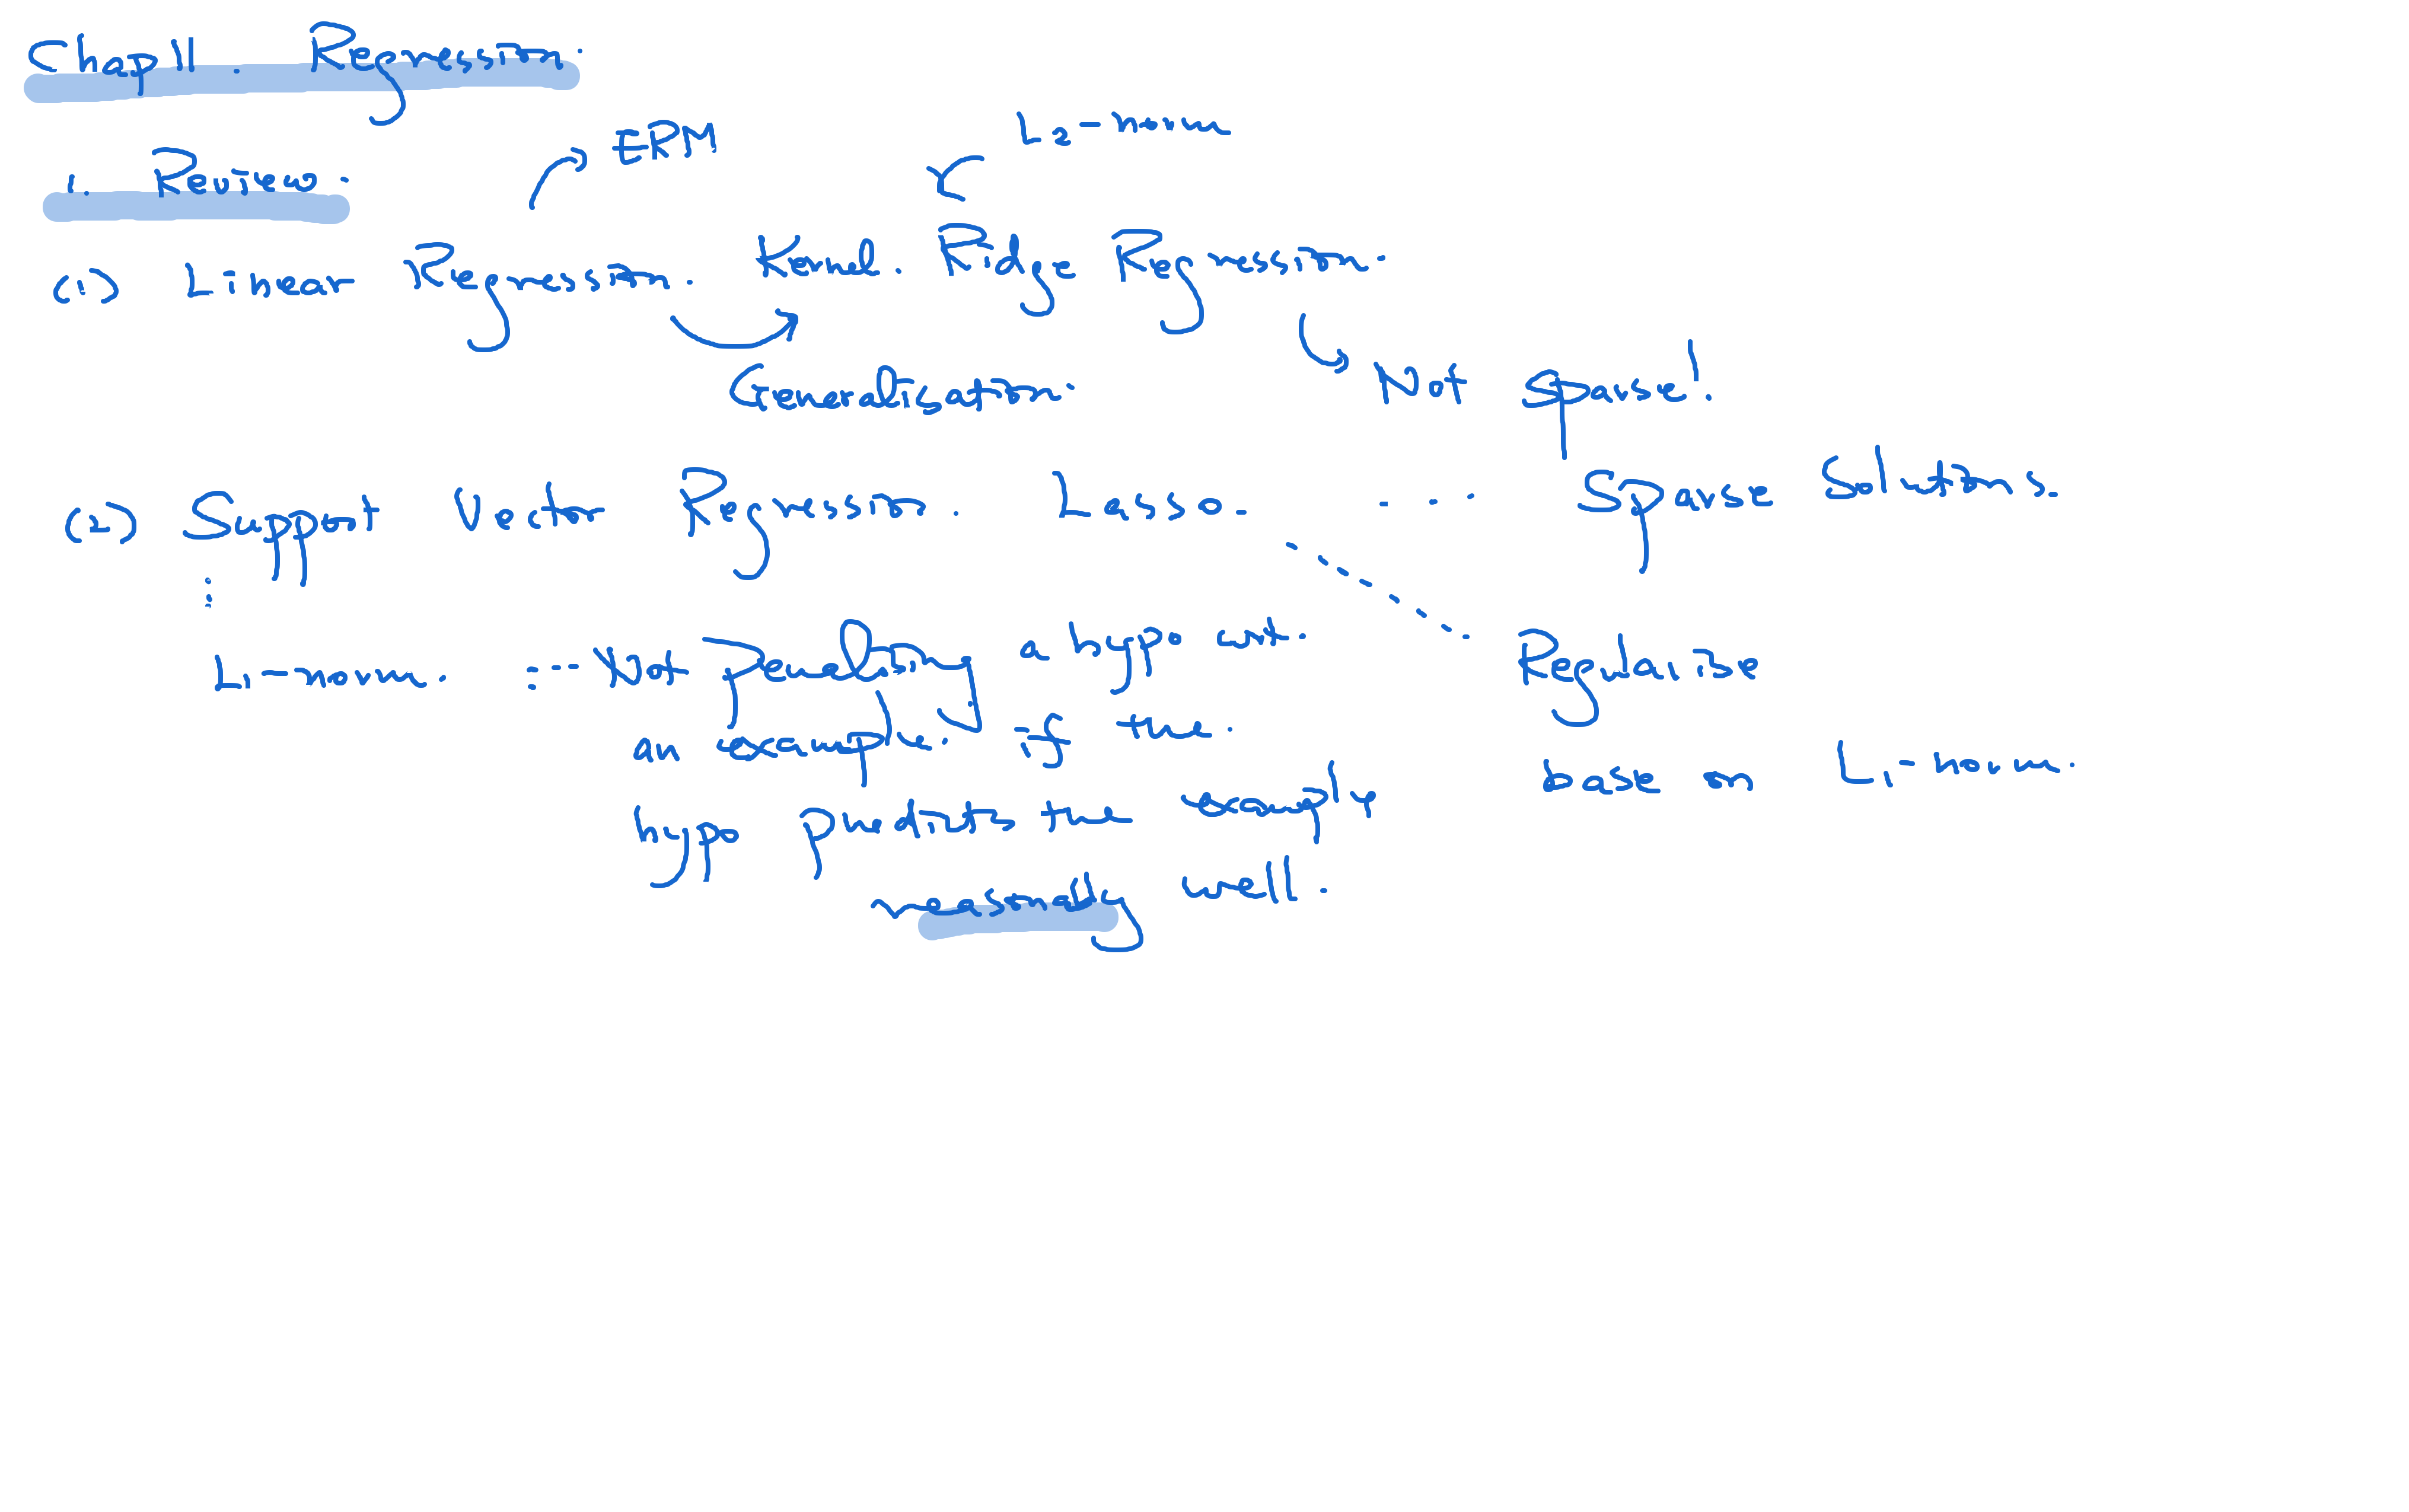 Chap 11. Regression.
1. Review.
ERM
L2-norm
(1) Linear Regression. Kernel. Ridge Regression.
Generalization.
Not sparse!
(2) Support Vector Regression. Lasso - ... Sparse Solutions.
L1-norm. Not penalizing a hypo wrt.
an example. if the.
hypo predicts the example
reasonably well.
Regularize
base on L1-norm.